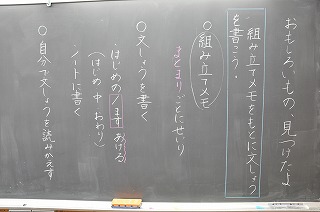 おもしろいもの、見つけたよ
組み立てメモをもとに文しょう
を書こう。
○組み立てメモ
まとまりごとにせいり
○文しょうを書く
・はじめの1ますあける
(はじめ 中 おわり)
・ノートに書く
○自分で文しょうを読みかえす